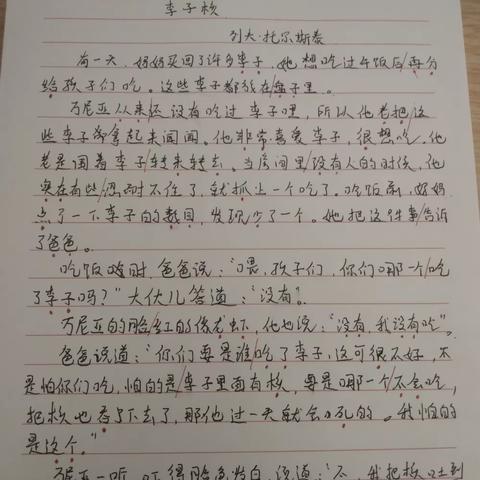 李子核
列夫·托尔斯泰
有一天，妈妈买回了许多李子，她想吃过午饭后再分
给孩子们吃。这些李子都放在盘子里。
万尼亚从来还没有吃过李子哩，所以他老把这
些李子都拿起来闻闻。他非常喜爱李子，很想吃，他
老是围着李子转来转去。当房间里没有人的时候，他
实在有些忍耐不住了，就抓上一个吃了。吃饭前，妈妈
点了一下李子的数目，发现少了一个。她把这件事告诉
了爸爸。
吃饭时，爸爸说：“喂，孩子们，你们哪一个吃
了李子吗？”大伙儿答道：“没有。
万尼亚的脸红的像龙虾，他也说：“没有，我没有吃”。
爸爸说道：“你们要是谁吃了李子，这可很不好，不
是怕你们吃，怕的是李子里面有核，要是哪一个不会吃，
把核也吞下去了，那他过一天就会死的。我怕的
是这个。”
万尼亚一听，吓得脸色发白，说道：“不，我把核吐到